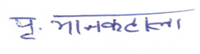 पृ. मानकटाला